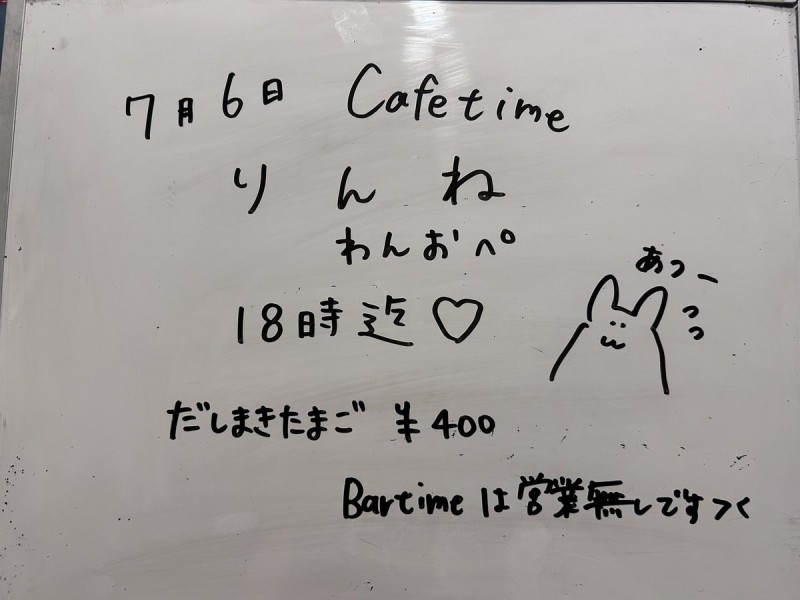 7月6日 Cafetime
りんね
わんおペ
18時迄♡
あつー
っっ
だしまきたまご ¥400
Bartimeは営業無しですっ